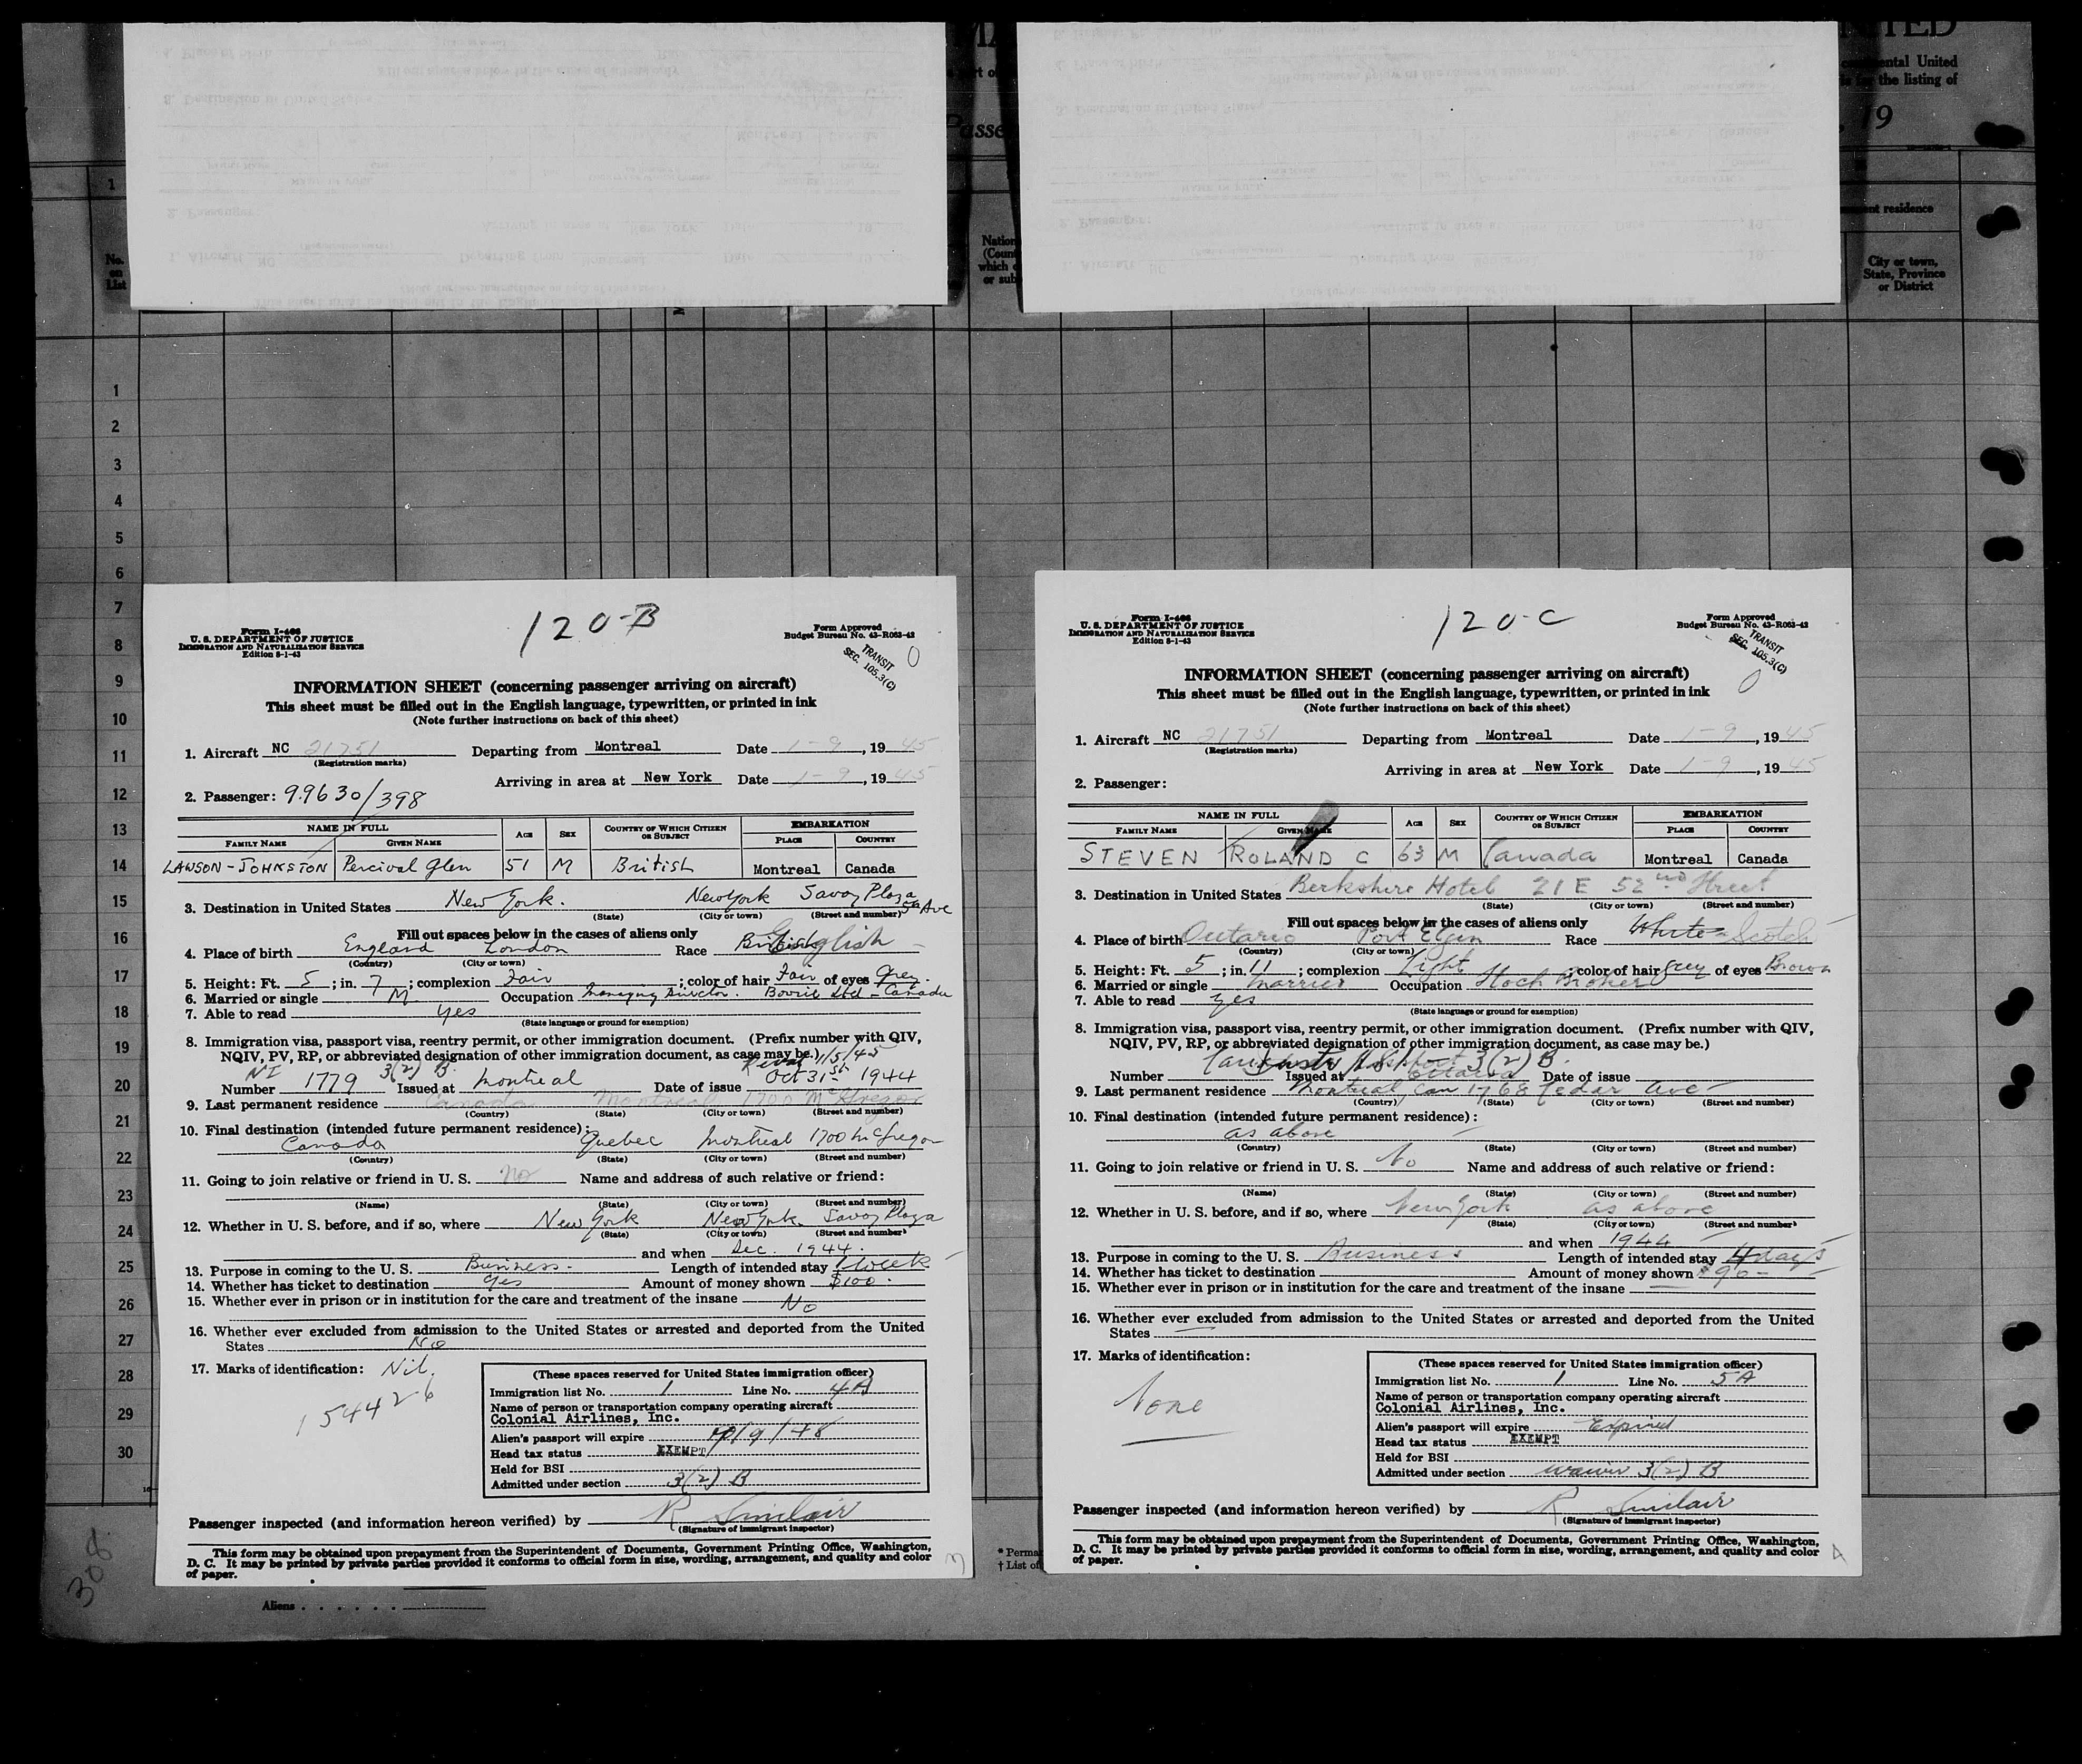 MA
TED
rt of
ental United
for the listing of
Passe
, 19
nt residence
No.
on
List
Nation
(Coun
which
or sub
City or town,
State, Province
or District
1
1
2
3
4
5
6
7
8
9
10
11
12
13
14
15
16
17
18
19
20
21
22
23
24
25
26
27
28
29
30
120-B
Form I-466
U. S. DEPARTMENT OF JUSTICE
IMMIGRATION AND NATURALIZATION SERVICE
Edition 8-1-43
Form Approved
Budget Bureau No. 43-R063-42
TRANSIT
SEC. 105.3(C)
0
INFORMATION SHEET (concerning passenger arriving on aircraft)
This sheet must be filled out in the English language, typewritten, or printed in ink
(Note further instructions on back of this sheet)
1. Aircraft NC 21751 Departing from Montreal Date 1-9, 1945
(Registration marks)
Arriving in area at New York Date 1-9, 1945
2. Passenger: 99630/398
NAME IN FULL AGE SEX COUNTRY OF WHICH CITIZEN OR SUBJECT EMBARKATION
FAMILY NAME GIVEN NAME PLACE COUNTRY
LAWSON-JOHNSTON Percival Glen 51 M British Montreal Canada
3. Destination in United States New York. New York Savoy Plaza 5th Ave
(State) (City or town) (Street and number)
Fill out spaces below in the cases of aliens only
4. Place of birth England London Race British English
(Country) (City or town)
5. Height: Ft. 5; in. 7; complexion Fair; color of hair Fair of eyes Grey.
6. Married or single M Occupation Managing Director. Bovril Ltd - Canada
7. Able to read yes
(State language or ground for exemption)
8. Immigration visa, passport visa, reentry permit, or other immigration document. (Prefix number with QIV,
NQIV, PV, RP, or abbreviated designation of other immigration document, as case may be.) 1/5/45
NI 3(2) B.
Number 1779 Issued at Montreal Date of issue Oct 31st 1944
9. Last permanent residence Canada Montreal 1700 McGregor
(Country) (State) (City or town) (Street and number)
10. Final destination (intended future permanent residence):
Canada Quebec Montreal 1700 McGregor
(Country) (State) (City or town) (Street and number)
11. Going to join relative or friend in U. S. no Name and address of such relative or friend:
(Name) (State) (City or town) (Street and number)
12. Whether in U. S. before, and if so, where New York New York. Savoy Plaza
(State) (City or town) (Street and number)
and when Dec. 1944.
13. Purpose in coming to the U. S. Business. Length of intended stay 1 week
14. Whether has ticket to destination yes Amount of money shown $100.
15. Whether ever in prison or in institution for the care and treatment of the insane No
16. Whether ever excluded from admission to the United States or arrested and deported from the United
States No
17. Marks of identification: Nil.
154426
(These spaces reserved for United States immigration officer)
Immigration list No. 1 Line No. 4A
Name of person or transportation company operating aircraft
Colonial Airlines, Inc.
Alien's passport will expire 10/9/48
Head tax status EXEMPT
Held for BSI
Admitted under section 3(2) B
Passenger inspected (and information hereon verified) by R Sinclair
(Signature of immigrant inspector)
This form may be obtained upon prepayment from the Superintendent of Documents, Government Printing Office, Washington,
D. C. It may be printed by private parties provided it conforms to official form in size, wording, arrangement, and quality and color
of paper.
308
Aliens
120-C
Form I-466
U. S. DEPARTMENT OF JUSTICE
IMMIGRATION AND NATURALIZATION SERVICE
Edition 8-1-43
Form Approved
Budget Bureau No. 43-R063-42
TRANSIT
SEC. 105.3(C)
0
INFORMATION SHEET (concerning passenger arriving on aircraft)
This sheet must be filled out in the English language, typewritten, or printed in ink
(Note further instructions on back of this sheet)
1. Aircraft NC 21751 Departing from Montreal Date 1-9, 1945
(Registration marks)
Arriving in area at New York Date 1-9, 1945
2. Passenger:
NAME IN FULL AGE SEX COUNTRY OF WHICH CITIZEN OR SUBJECT EMBARKATION
FAMILY NAME GIVEN NAME PLACE COUNTRY
STEVEN ROLAND C 63 M Canada Montreal Canada
3. Destination in United States Berkshire Hotel 21 E 52nd Street
(State) (City or town) (Street and number)
Fill out spaces below in the cases of aliens only
4. Place of birth Ontario Port Elgin Race White Scotch
(Country) (City or town)
5. Height: Ft. 5; in. 11; complexion Light; color of hair Grey of eyes Brown
6. Married or single Married Occupation Stock Broker
7. Able to read yes
(State language or ground for exemption)
8. Immigration visa, passport visa, reentry permit, or other immigration document. (Prefix number with QIV,
NQIV, PV, RP, or abbreviated designation of other immigration document, as case may be.)
3(2) B.
Number Issued at Ottawa Date of issue
9. Last permanent residence Montreal Can 1768 Cedar Ave
(Country) (State) (City or town) (Street and number)
10. Final destination (intended future permanent residence):
as above
(Country) (State) (City or town) (Street and number)
11. Going to join relative or friend in U. S. No Name and address of such relative or friend:
(Name) (State) (City or town) (Street and number)
12. Whether in U. S. before, and if so, where New York as above
(State) (City or town) (Street and number)
and when 1944
13. Purpose in coming to the U. S. Business Length of intended stay 4 days
14. Whether has ticket to destination Amount of money shown $90-
15. Whether ever in prison or in institution for the care and treatment of the insane —
16. Whether ever excluded from admission to the United States or arrested and deported from the United
States —
17. Marks of identification:
None
(These spaces reserved for United States immigration officer)
Immigration list No. 1 Line No. 5A
Name of person or transportation company operating aircraft
Colonial Airlines, Inc.
Alien's passport will expire Expired
Head tax status EXEMPT
Held for BSI
Admitted under section waiver 3(2) B
Passenger inspected (and information hereon verified) by R Sinclair
(Signature of immigrant inspector)
This form may be obtained upon prepayment from the Superintendent of Documents, Government Printing Office, Washington,
D. C. It may be printed by private parties provided it conforms to official form in size, wording, arrangement, and quality and color
of paper.
* Perma
† List of